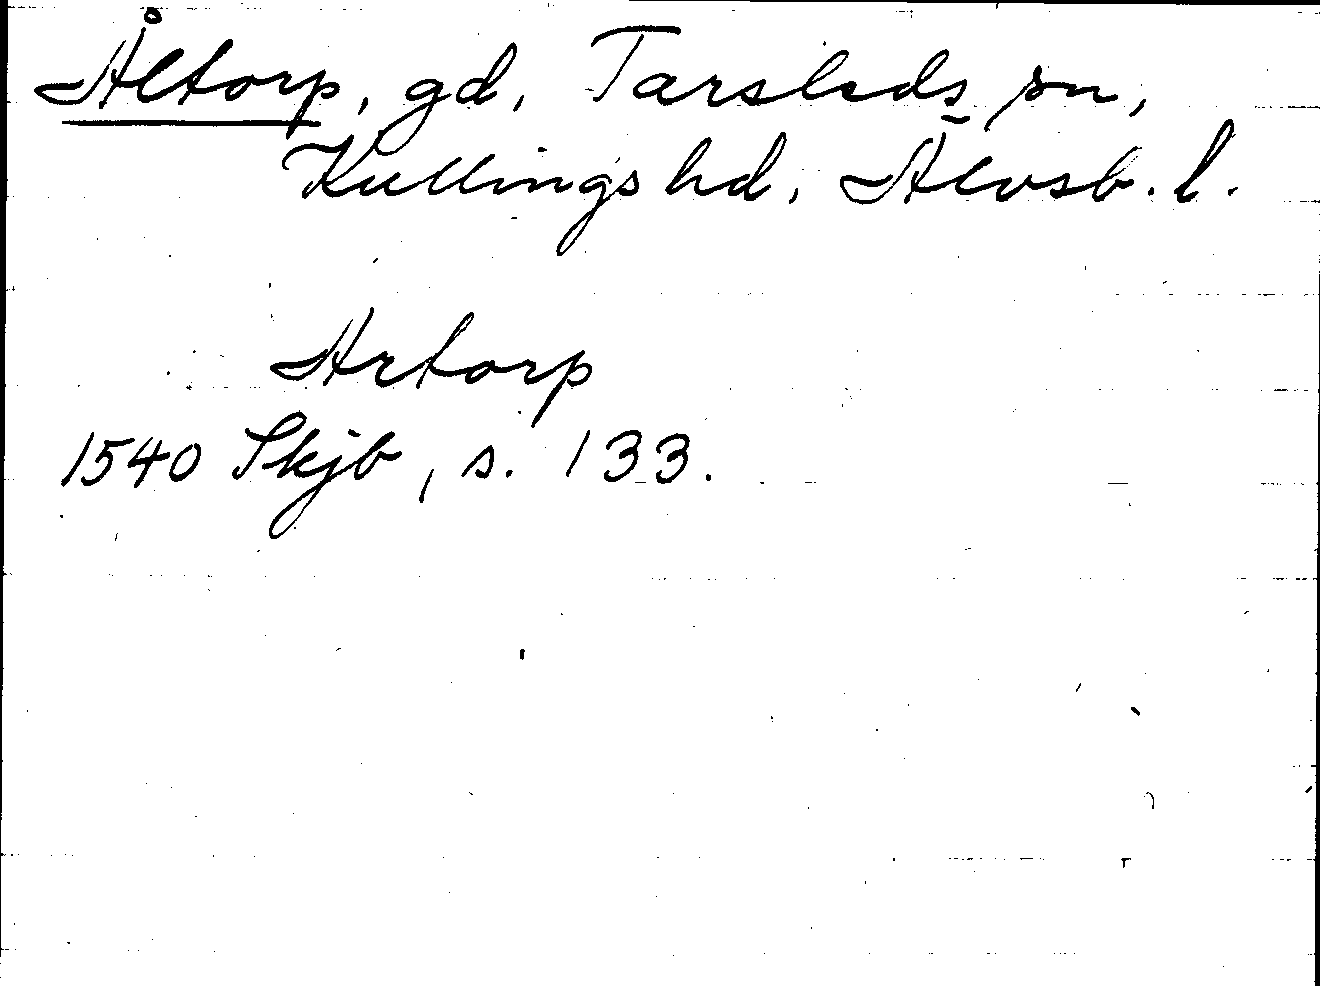 Åltorp, gd, Tarsleds sn,
Kullings hd, Älvsb. l.
Artorp
1540 Skjb, s. 133.